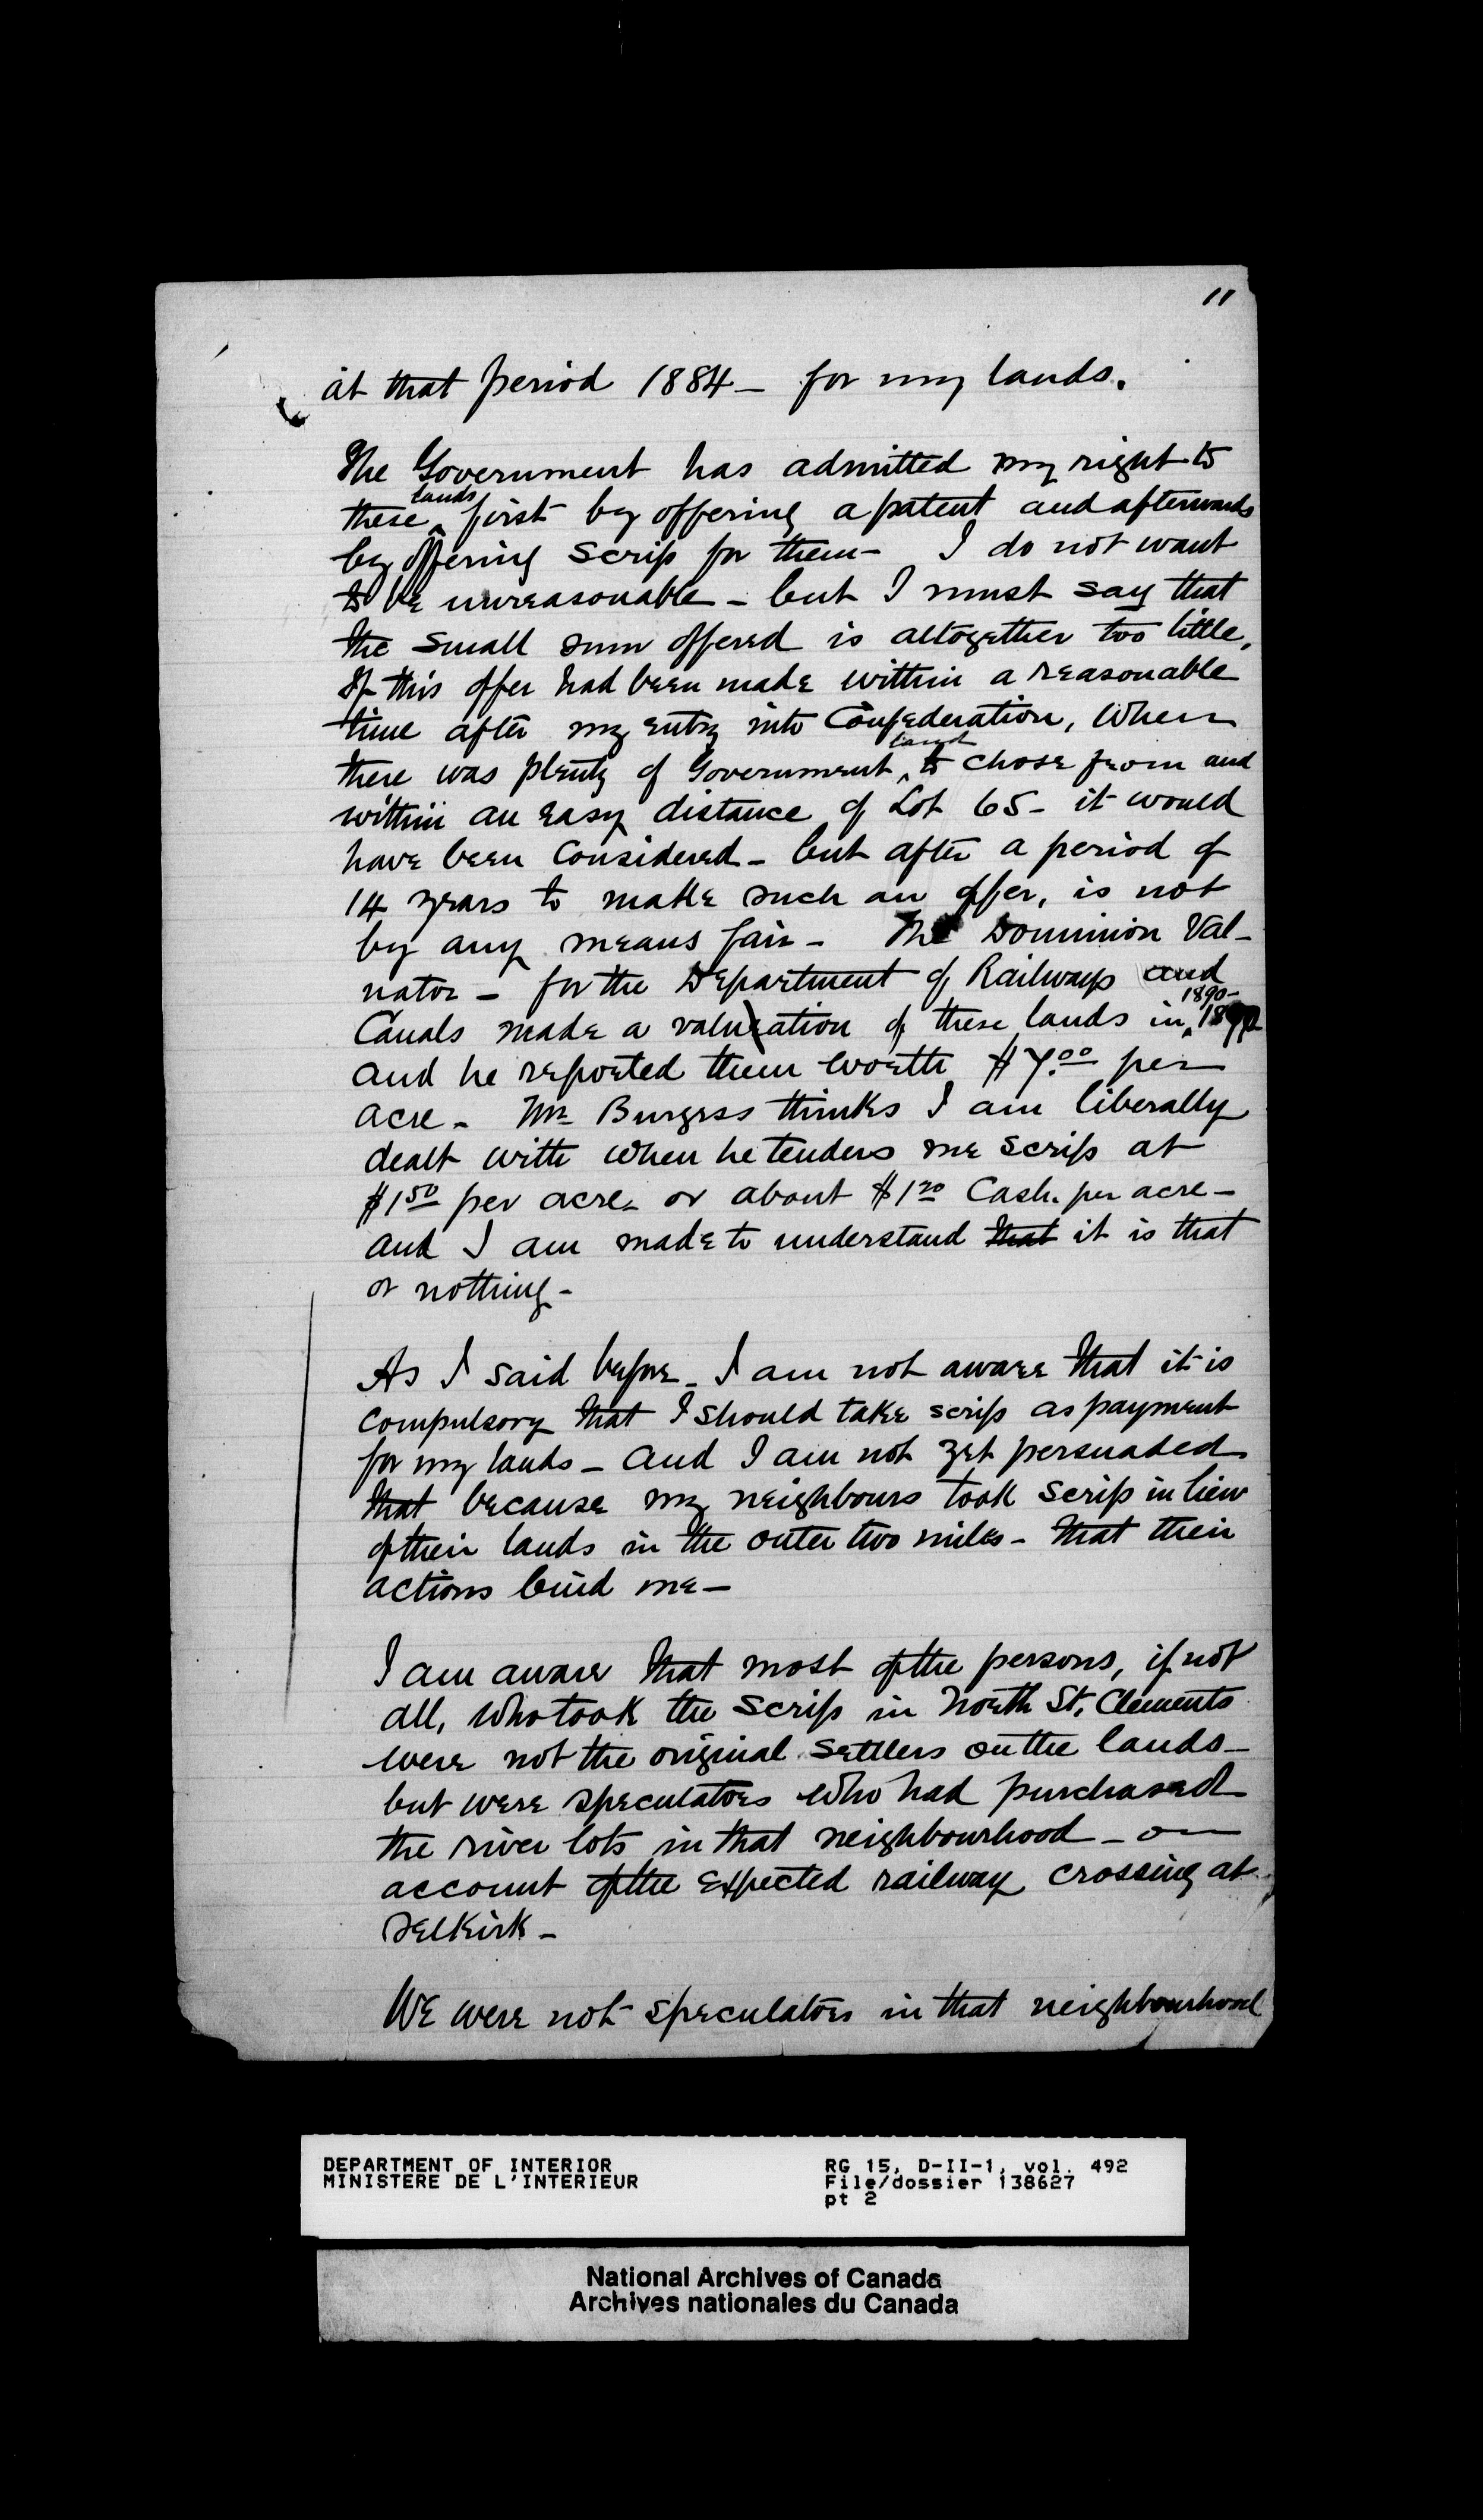 11
at that period 1884 — for my lands.
The Government has admitted my right to
lands
these ^ first by offering a patent and afterwards
by offering scrip for them — I do not want
to be unreasonable — but I must say that
the small sum offered is altogether too little,
If this offer had been made within a reasonable
time after my entry into Confederation, When
land
there was plenty of Government ^ to chose from and
within an easy distance of Lot 65 — it would
have been Considered — but after a period of
14 years to make such an offer, is not
by any means fair — The Dominion Val-
uator — for the Department of Railways and
1890 —
Canals made a valuation of these lands in ^
and he reported them worth $7.00 per
acre — Mr Burgess thinks I am liberally
dealt with when he tenders me scrip at
$1 50 per acre — or about $1 20 Cash. per acre —
and I am made to understand that it is that
or nothing —
As I said before — I am not aware that it is
compulsory that I should take scrip as payment
for my lands — and I am not yet persuaded
that because my neighbours took scrip in lieu
of their lands in the outer two miles — that their
actions bind me —
I am aware that most of the persons, if not
all, who took the scrip in North St. Clements
were not the original settlers on the lands —
but were speculators who had purchased
the river lots in that neighbourhood — on
account of the expected railway crossing at
Selkirk —
We were not speculators in that neighbourhood
DEPARTMENT OF INTERIOR
MINISTERE DE L'INTERIEUR
RG 15, D-II-1, vol. 492
File/dossier 138627
pt 2
National Archives of Canada
Archives nationales du Canada